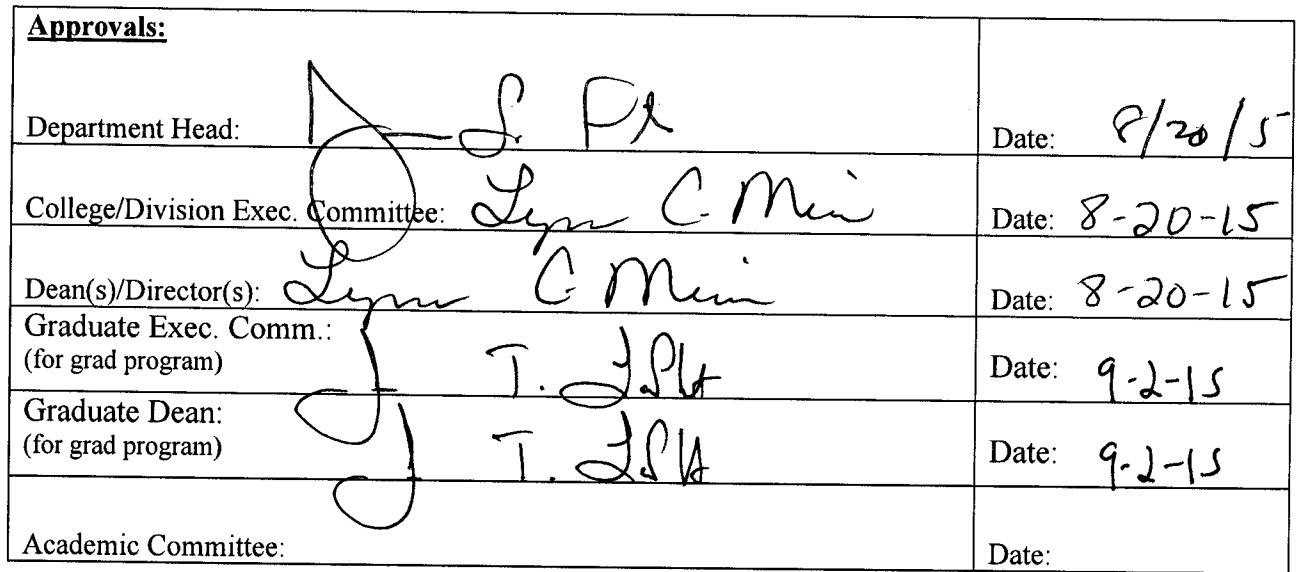 Approvals:
Department Head: Date: 8/20/15
College/Division Exec. Committee: Lynn C Date: 8-20-15
Dean(s)/Director(s): Lynn C Date: 8-20-15
Graduate Exec. Comm.:
(for grad program) J T. Date: 9-2-15
Graduate Dean:
(for grad program) J T. Date: 9-2-15
Academic Committee: Date: